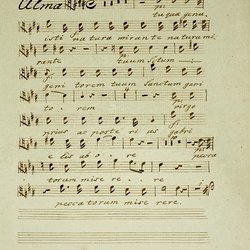 Alma
tu quae genu,
isti natura mirante naturami,
rante tuum Sctum
geni torem tuum Sanctum geni
to rem virgo
prius ac poste ri us gabri
e lis ab o re pecca
torum mise re re
peccatorum mise rere.